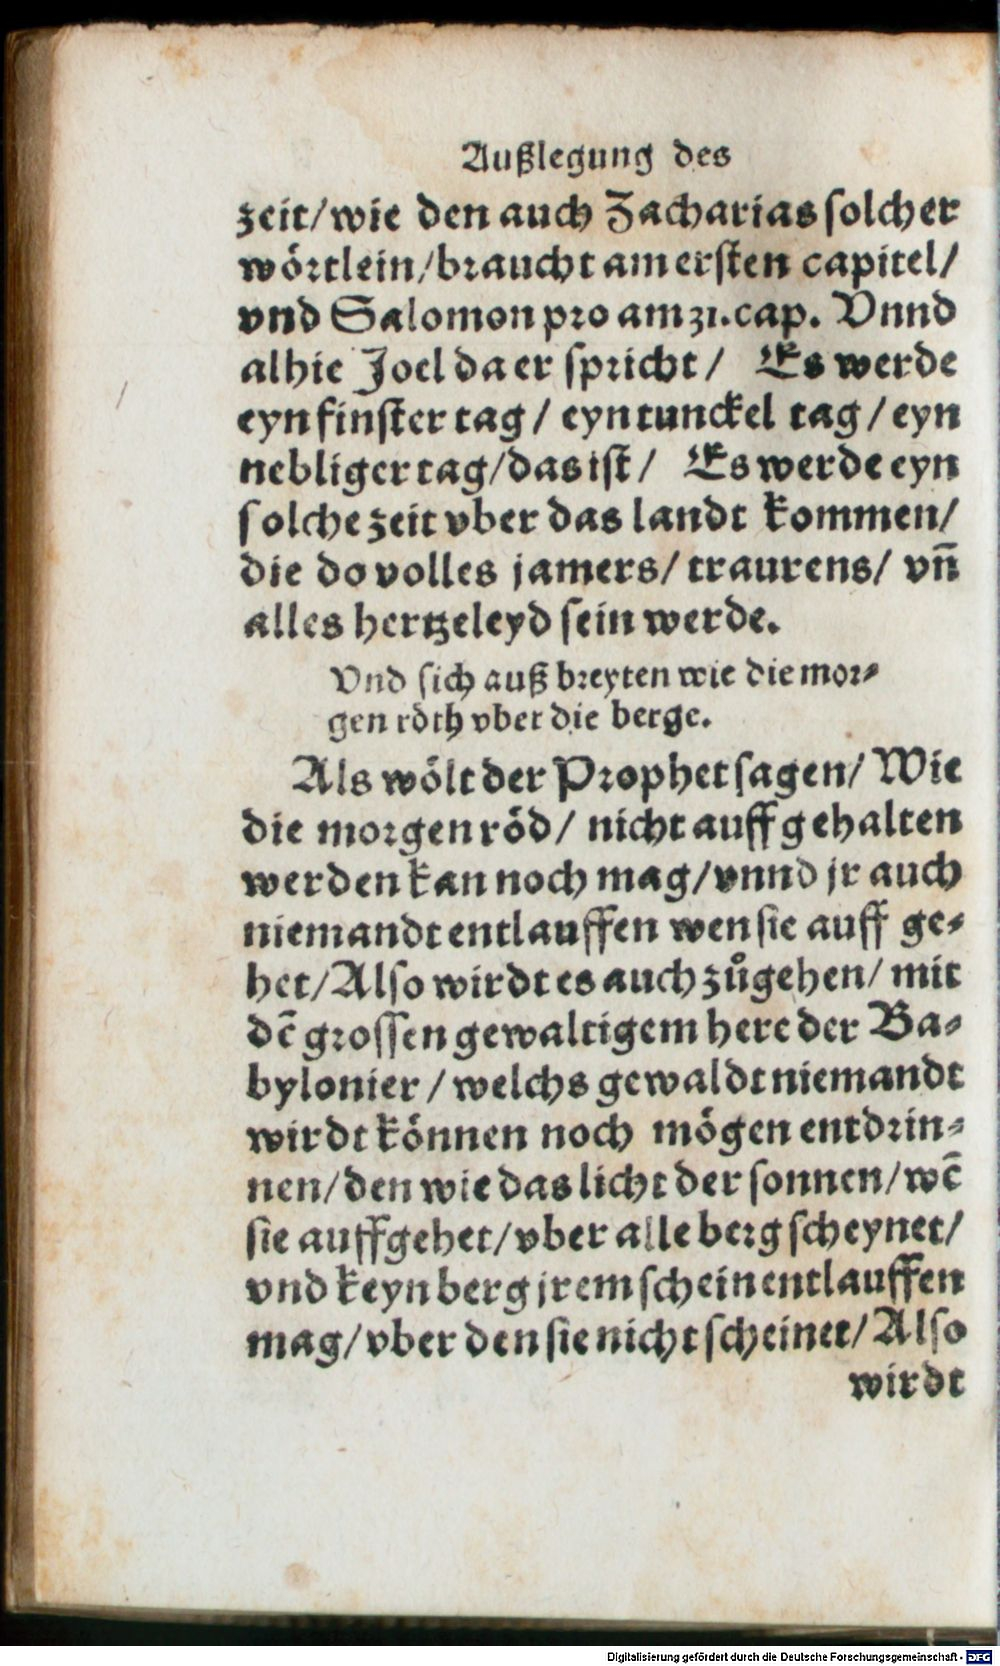 Außlegung des
zeit/wie den auch Zacharias solcher
wörtlein/braucht am ersten capitel/
vnd Salomon pro am 31.cap. Vnnd
alhie Joel da er spricht/ Es werde
eyn finster tag/ eyn tunckel tag/ eyn
nebliger tag/das ist/ Es werde eyn
solche zeit vber das landt kommen/
die do volles jamers/ traurens/ vñ
alles hertzeleyd sein werde.
Vnd sich auß breyten wie die mor⸗
gen röth vber die berge.
Als wölt der Prophet sagen/ Wie
die morgen röd/ nicht auffgehalten
werden kan noch mag/vnnd jr auch
niemandt entlauffen wen sie auff ge⸗
het/Also wirdt es auch zůgehen/ mit
dẽ grossen gewaltigem here der Ba⸗
bylonier/ welchs gewaldt niemandt
wirdt können noch mögen entdrin⸗
nen/den wie das licht der sonnen/wẽ
sie auffgehet/vber alle berg scheynet/
vnd keyn berg jrem schein entlauffen
mag/vber den sie nicht scheinet/Also
wirdt
Digitalisierung gefördert durch die Deutsche Forschungsgemeinschaft - DFG